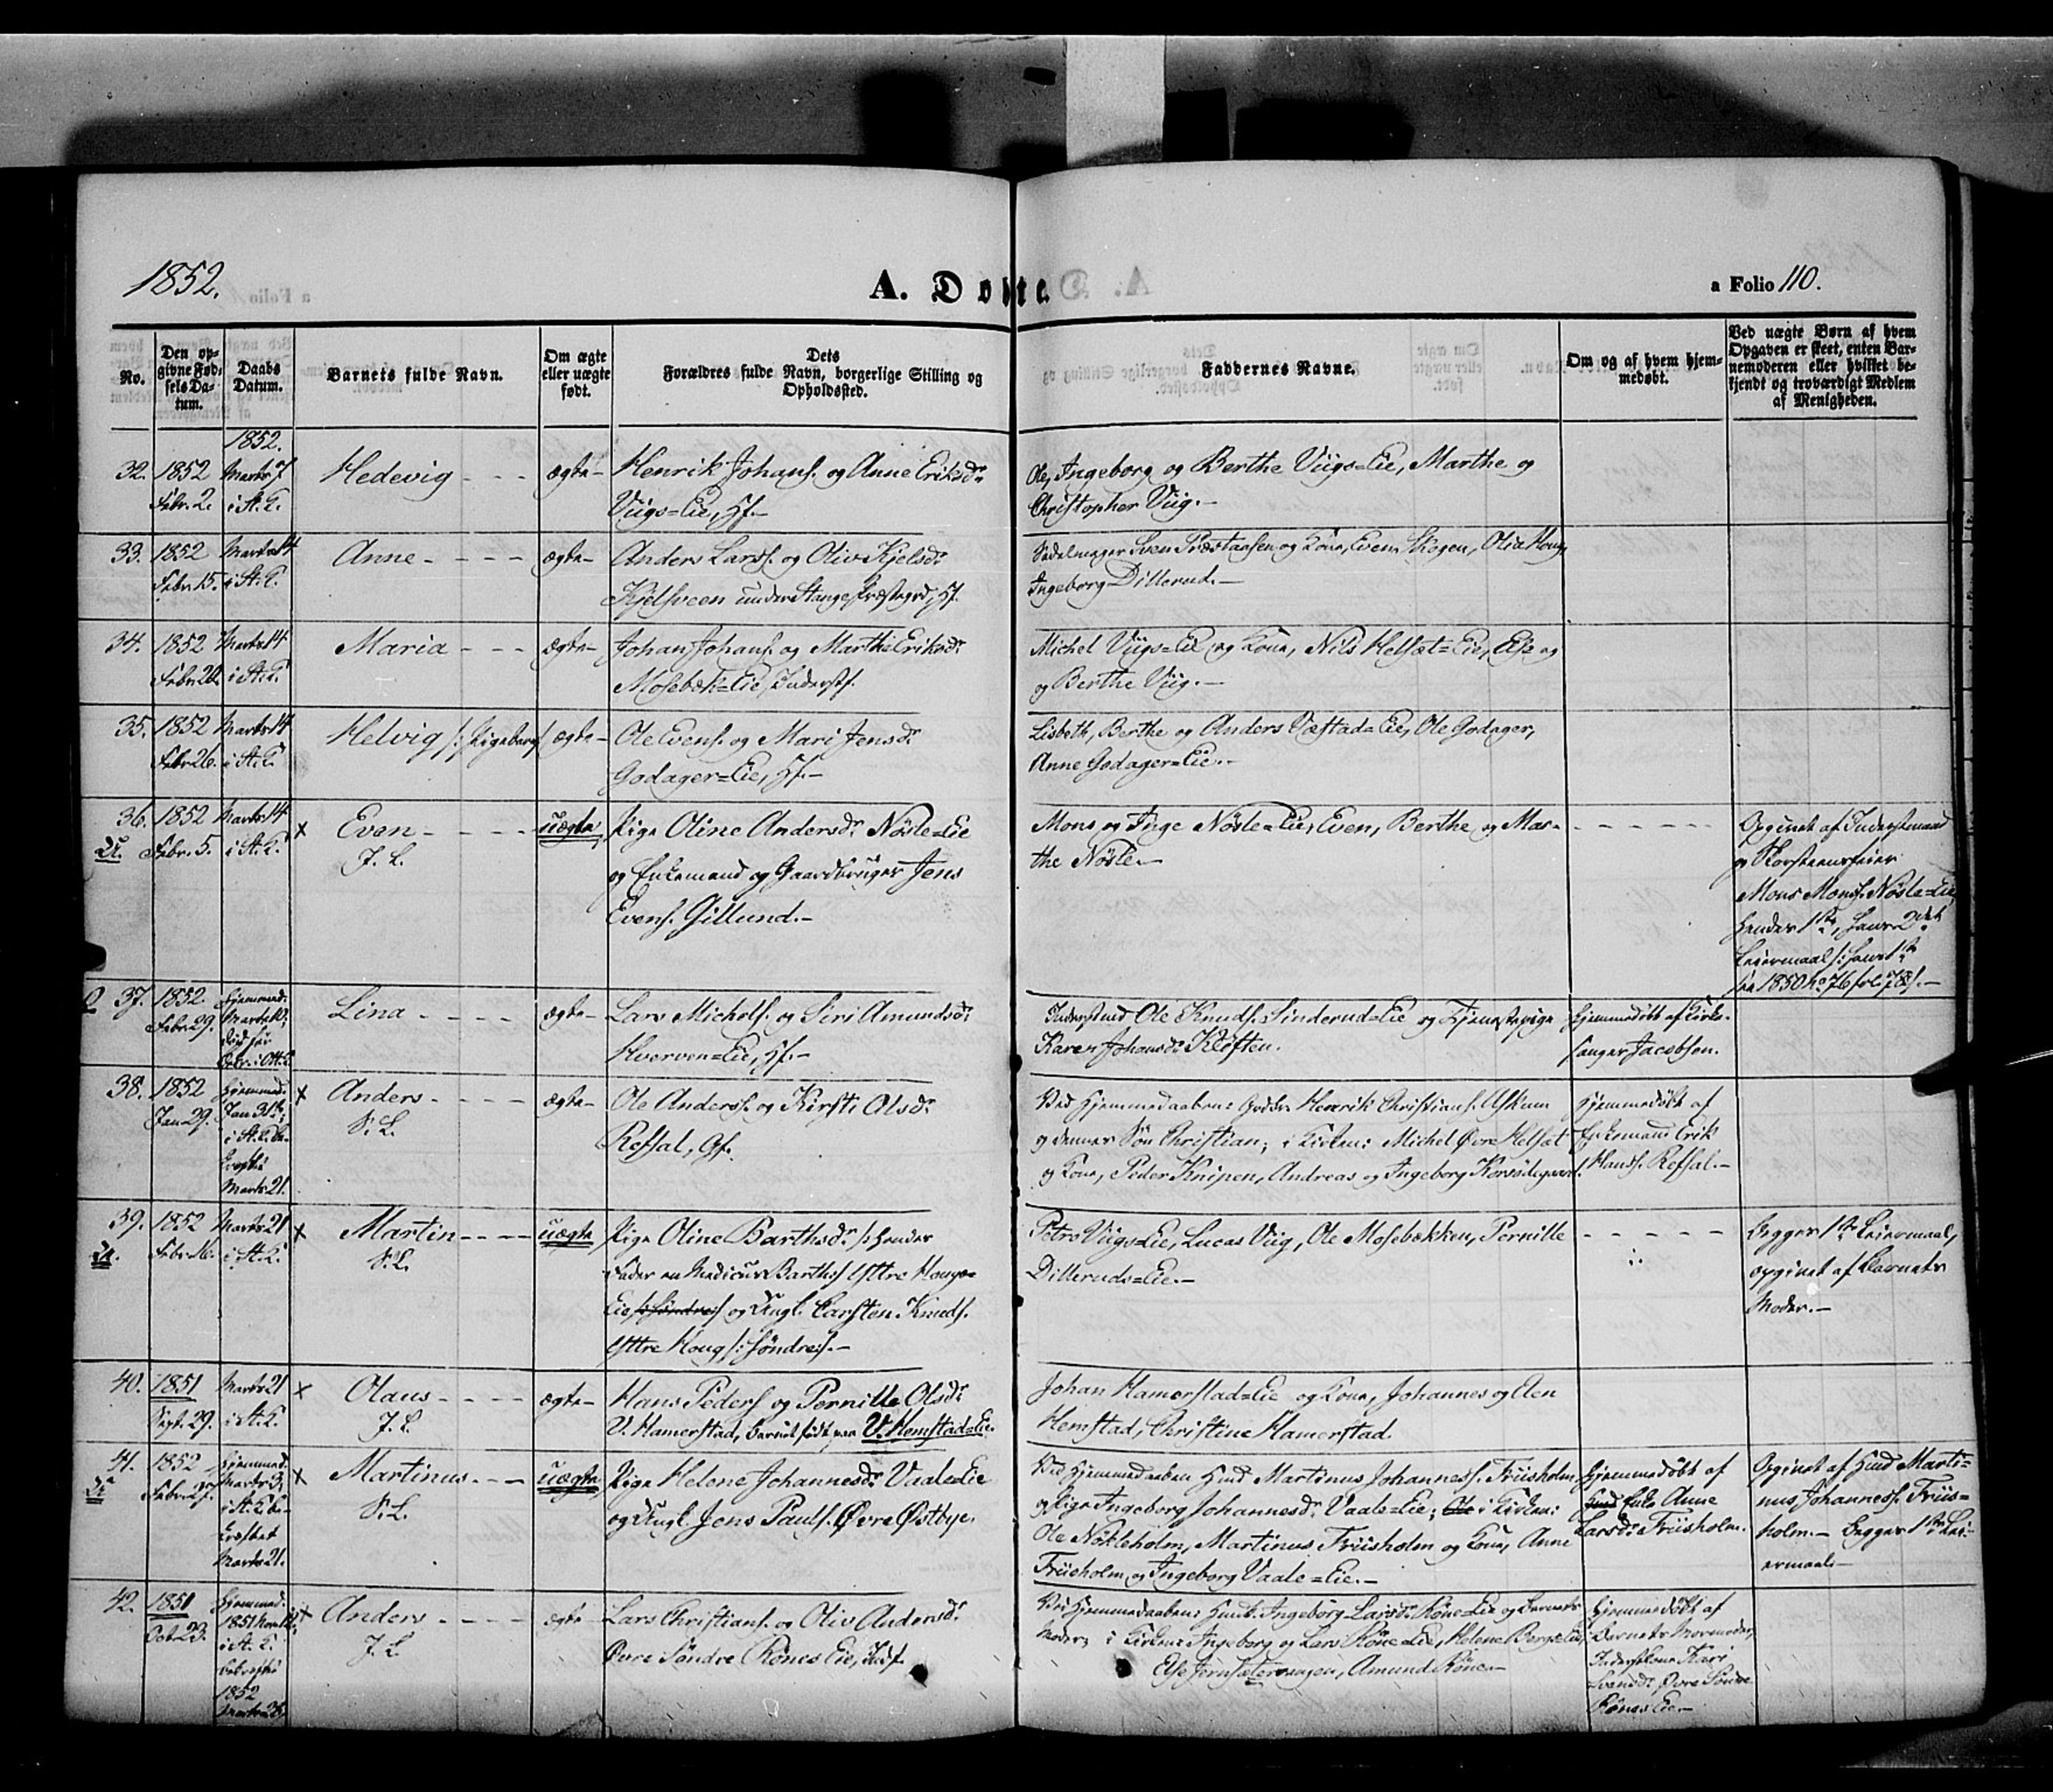 1852.
A. Døbte.
a Folio 110.
No.
Den op-
givne Fød-
sels Da-
tum.
Daabs
Datum.
Barnets fulde Navn.
Om ægte
eller uægte
født.
Dets
Forældres fulde Navn, borgerlige Stilling og
Opholdssted.
Faddernes Navne.
Om og af hvem hjem-
medøbt.
Ved uægte Børn af hvem
Opgaven er skeet, enten Bar-
nemoderen eller hvilket be-
kjendt og troværdigt Medlem
af Menigheden.
32. 1852
Febr. 2.
1852.
Marts 7
i St. K.
Hedevig
ægte
Henrik Johans. og Anne Eriksdr
Viigs=Eie, Hf.
Ole, Ingeborg og Berthe Viigs=Eie, Marthe og
Christopher Viig.
33. 1852
Febr. 15.
Marts 14
i St. K.
Anne
ægte
Anders Larss. og Oliv Kjelsdr
Kjelsveen under Stange Præstegrd, Hf.
Sadelmager Sven Præstaasen og Kone, Even Skogen, Olia Houg
Ingeborg Dillerud.
34. 1852
Febr. 20.
Marts 14
i St. K.
Maria
ægte
Johan Johans. og Marthe Eriksdr
Mosebæk=Eie, Inderstf.
Michel Viigs=Eie og Kone, Nils Helset=Eie, Else og
og Berthe Viig.
35. 1852
Febr. 26.
Marts 14
i St. K.
Helvig /: Pigebarn
ægte
Ole Evens. og Mari Jensdr
Godager=Eie, Hf.
Lisbeth, Berthe og Anders Væstad=Eie, Ole Godager,
Anne Godager=Eie.
36. 1852
U. Febr. 5.
Marts 14
i St. K.
x Even
J. L.
uægte
Pige Oline Andersdr Nøsle=Eie
og Enkemand og Gaardbruger Jens
Evens. Gillund.
Mons og Inge Nøsle=Eie, Even, Berthe og Mar-
the Nøsle.
Opgivet af Inderstmand
og Skorsteensfeier
Mons Monss. Nøsle=Eie,
hendes 1ste, hans 2det
Leiermaal /: hans 1ste
fra 1850 No 76 fol. 78 :/.
37. 1852.
Febr. 29.
Hjemmed.
Marts 10,
død før
Bekr. i St. K.
Lina
ægte
Lars Michels. og Siri Amundsdr
Hverven=Eie, Hf.
Inderstmd Ole Knuds. Sinderud=Eie og Tjenestepige
Karen Johansdr Kløften.
Hjemmedøbt af Kirke-
sanger Jacobsen.
38. 1852
Jan. 29.
Hjemmed.
Jan 31te,
i St. K. be-
kræftet
Marts 21.
x Anders
S. L.
ægte
Ole Anderss. og Kirsti Olsdr
Refsal, Gf.
Ved Hjemmedaaben: Gaardbr. Henrik Christians. Askum
og dennes Søn Christian; i Kirken: Michel Øvre Helset
og Kone, Peder Knipen, Andreas og Ingeborg Korsødegaard.
Hjemmedøbt af
Enkemand Erik
Hanss. Refsal.
39. 1852
U. Febr. 16.
Marts 21
i St. K.
x Martin
S. L.
uægte
Pige Oline Barthsdr /: hendes
Fader en Medicus Barth :/ Yttre Hougs=
Eie og Ungk. Carsten Knuds.
Yttre Houg /: søndre :/.
Petro Viigs=Eie, Lucas Viig, Ole Mosebækken, Pernille
Dilleruds=Eie.
Begges 1ste Leiermaal,
opgivet af Barnets
Moder.
40. 1851
Sept. 29.
Marts 21
i St. K.
x Olaus
J. L.
ægte
Hans Peders. og Pernille Olsdr
V. Hamerstad, Barnet født paa V. Hemstad=Eie.
Johan Hamerstad=Eie og Kone, Johannes og Elen
Hemstad, Christine Hamerstad.
41. 1852
U. Febr. 27.
Hjemmed.
Marts 3,
i St. K. be-
kræftet
Marts 21.
x Martinus
S. L.
uægte
Pige Helene Johannesdr Vaale=Eie
og Ungk. Jens Pauls. Øvre Østbye.
Ved Hjemmedaaben Husmd Martinus Johanness. Friisholm
og Pige Ingeborg Johannesdr Vaale=Eie; i Kirken:
Ole Nøkleholm, Martinus Friisholm og Kone, Anne
Friisholm og Ingeborg Vaale=Eie.
Hjemmedøbt af
Enke Anne
Larsdr Friisholm.
Opgivet af Husmd Marti-
nus Johanness. Friis=
holm. Begges 1ste Lei-
ermaal.
42. 1851
Oct. 23.
Hjemmed.
1851 Nov. 12,
i St. K.
bekræftet
1852
Marts 28.
x Anders
J. L.
ægte
Lars Christians. og Oliv Andersdr
Øvre Søndre Rønes Eie, Indf.
Ved Hjemmedaaben: Husmk. Ingeborg Larsdr Røne=Eie og Barnets
Moder; i Kirken: Ingeborg og Lars Røne=Eie, Helene Berg=Eie,
Else Jernsætervangen, Amund Røne.
Hjemmedøbt af
Barnets Mormoder,
Inderstkone Kari
Svendsdr Øvre Søndre
Rønes Eie.